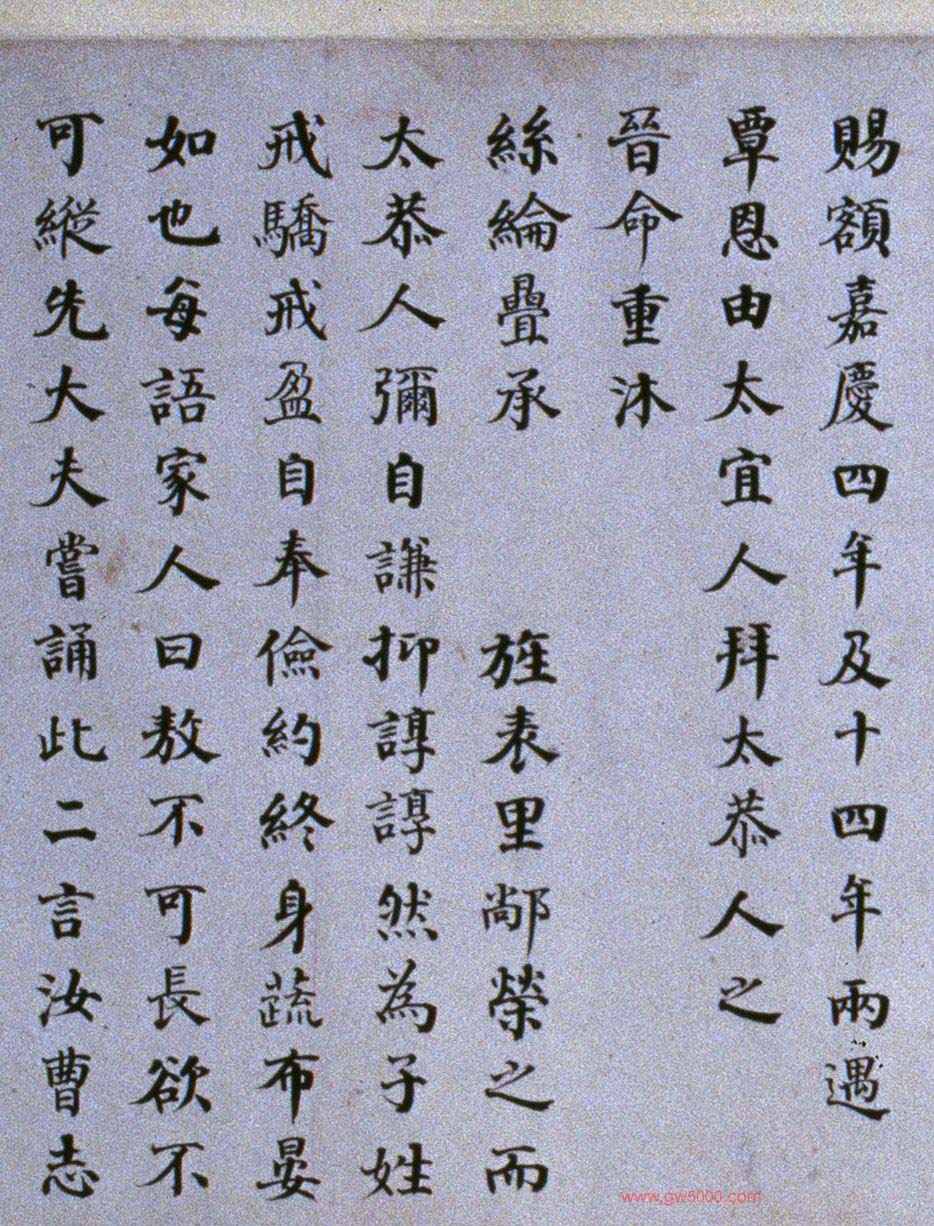 賜額嘉慶四年及十四年兩遇
覃恩由太宜人拜太恭人之
晉命重沐
絲綸疊承　旌表里鄰榮之而
太恭人彌自謙抑諄諄然為子姓
戒驕戒盈自奉儉約終身蔬布晏
如也每語家人曰敖不可長欲不
可縱先大夫嘗誦此二言汝曹志
www.gw5000.com